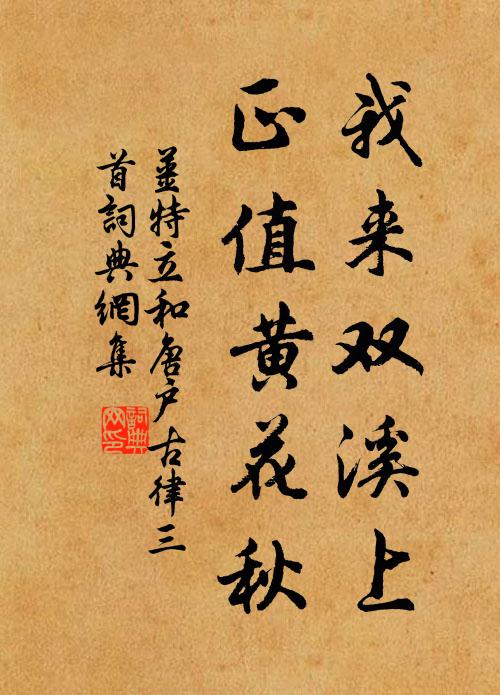 我来双溪上
正值黄花秋
薑特立和唐户古律三
首詞典網集
詞典
网印